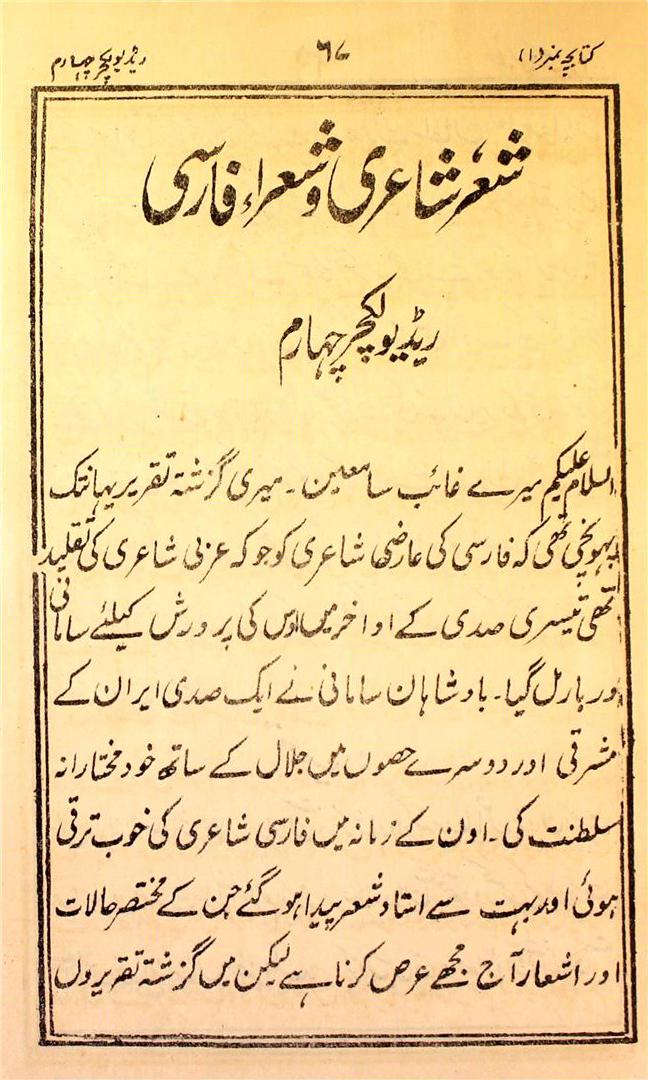 کتابچہ نمبر (۱) ۶۷ ریڈیو لکچر چہارم
شعر شاعری و شعراء فارسی
ریڈیو لکچر چہارم
السلام علیکم میرے غائب سامعین۔ میری گزشتہ تقریر یہانتک
پہونچی تھی کہ فارسی کی عارضی شاعری کو جو کہ عربی شاعری کی تقلید
تھی تیسری صدی کے اواخر میں اوس کی پرورش کیلئے سامانی
دربار مل گیا۔ بادشاہان سامانی نے ایک صدی ایران کے
مشرقی اور دوسرے حصوں میں جلال کے ساتھ خود مختارانہ
سلطنت کی۔ اون کے زمانہ میں فارسی شاعری کی خوب ترقی
ہوئی اور بہت سے استاد شعر پیدا ہو گئے جن کے مختصر حالات
اور اشعار آج مجھے عرض کرنا ہے لیکن میں گزشتہ تقریروں